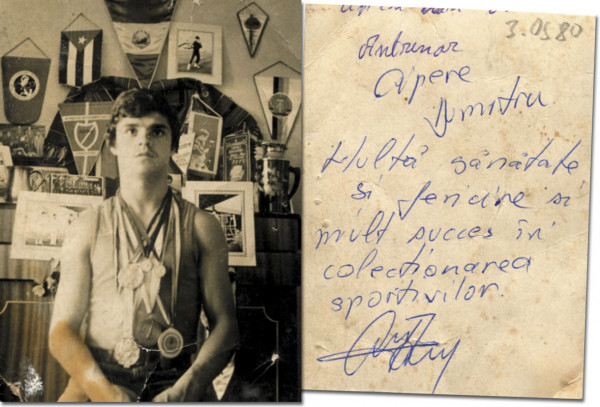 3.0580
Antrenor
Apere
Dumitru
Multă sănătate
si fericire si
mult succes în
colecționarea
sportivilor.